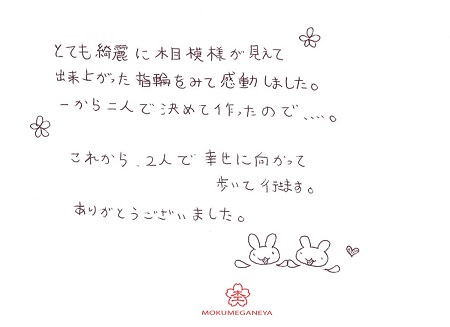 とても綺麗に木目模様が見えて
出来上がった指輪をみて感動しました。
一から二人で決めて作ったので、、、、。
これから、2人で幸せに向かって
歩いて行きます。
ありがとうございました。
MOKUMEGANEYA